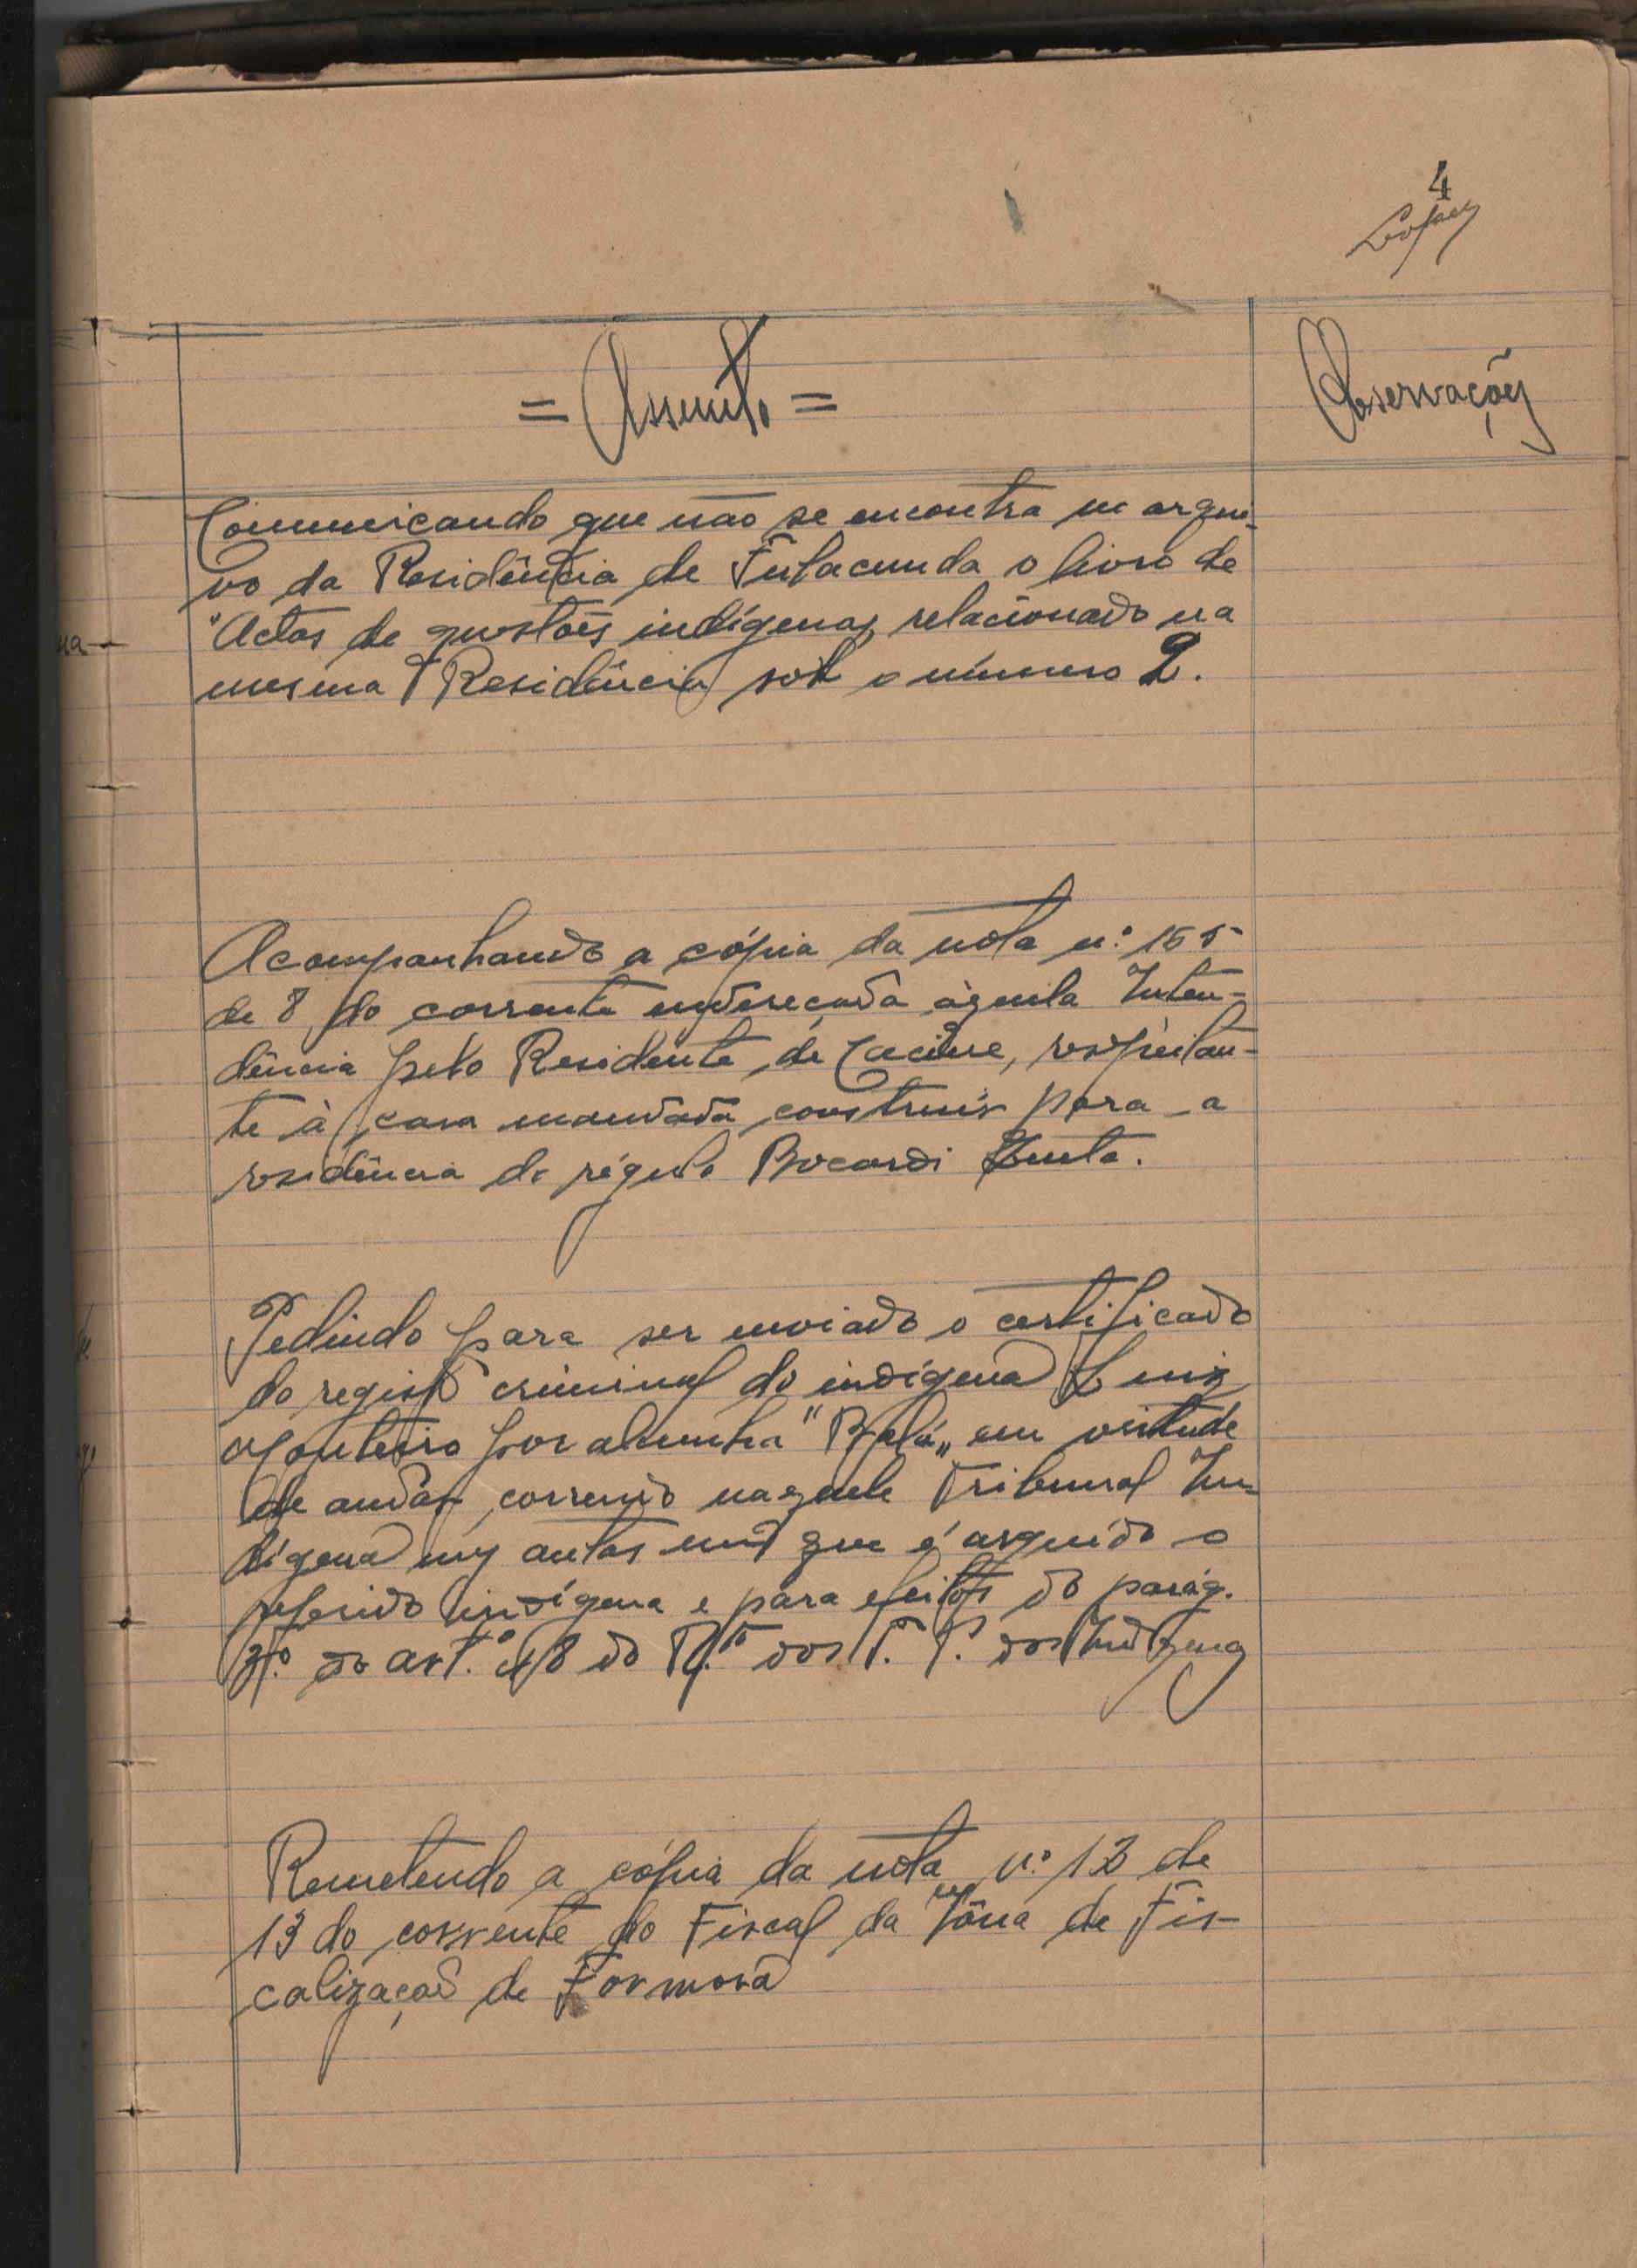 4
Lopes
= Assunto =
Observações
Comunicando que não se encontra no arqui-
vo da Residência de Fulacunda o livro de
"Actas de questões indígenas, relacionado na
mesma Residência sob o número 2.
Acompanhando a cópia da nota n.º 165
de 8 do corrente endereçada àquela Inten-
dência pelo Residente de Cacine, respeitan-
te à casa mandada construir para a
residência do régulo Bocardi
Pedindo para ser enviado o certificado
do registo criminal do indígena Luiz
Monteiro por alcunha em virtude
de andar correndo naquele Tribunal In-
dígena uns autos em que é arguido o
referido indígena e para efeitos do parág.
3.º do art.º 48 do dos T. P. dos Indígenas
Remetendo a cópia da nota n.º 12 de
13 do corrente do Fiscal da Zôna de Fis-
calização de Formosa
na